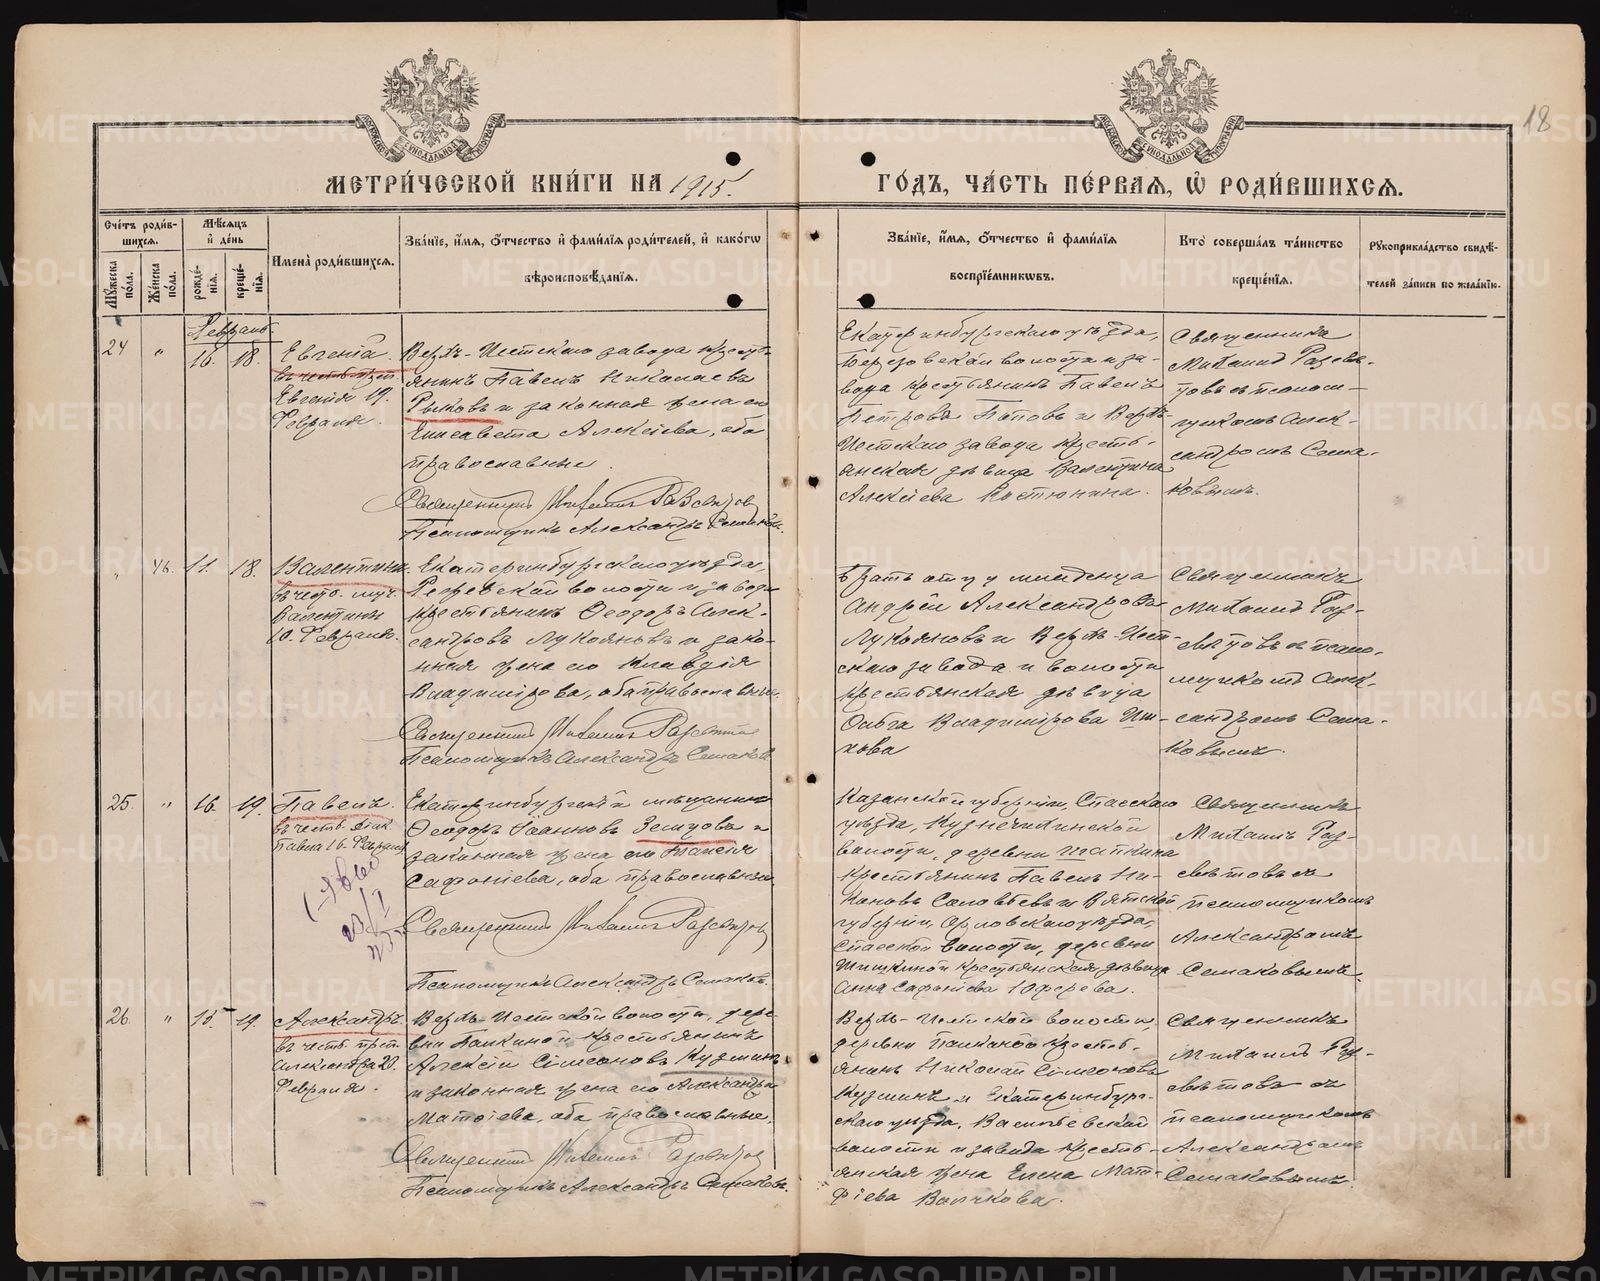 18
МЕТРИ́ЧЕСКОЙ КНИ́ГИ НА 1915.
ГО́ДЪ, ЧА́СТЬ ПЕ́РВАЯ, Ѽ РОДИ́ВШИХСЯ.
Сче́тъ роди́в-
шихся.
Мужеска по́ла.
Же́нска по́ла.
Мѣ́сяцъ
и҆ де́нь
рожде́-
нія.
креще́-
нія.
Имена̀ роди́вшихся.
Зва́ніе, и҆́мя, ѻ҆́тчество и҆ фами́лія роди́телей, и҆ како́гѡ
вѣроисповѣ́данія.
Зва́ніе, и҆́мя, ѻ҆́тчество и҆ фами́лія
воспріе́мниковъ.
Кто̀ соверша́лъ та́инство
креще́нія.
Рукоприкла́дство свидѣ́-
телей за́писи по жела́нію.
Февраль
24 " 16. 18.
Евгенiй.
въ честь преп.
Евгенiя 19.
Февраля.
Верхъ-Исетскаго завода кресть-
янинъ Павелъ Николаевъ
Рыковъ и законная жена его
Елисавета Алексѣева, оба
православные.
Священникъ Михаилъ Развѣтовъ
Псаломщикъ Александръ Семаковъ.
Екатеринбургскаго уѣзда,
Березовской волости и за-
вода крестьянинъ Павелъ
Петровъ Поповъ и Верхъ-
Исетскаго завода кресть-
янская дѣвица Валентина
Алексѣева Костюнина.
Священникъ
Михаилъ Развѣ-
товъ съ псалом-
щикомъ Алек-
сандромъ Сема-
ковымъ.
" 46. 11. 18.
Валентина.
въ честь муч.
Валентины
10. Февраля.
Екатеринбургскаго уѣзда,
Режевской волости и завода
крестьянинъ Ѳеодоръ Алек-
сандровъ Лукояновъ и зако-
нная жена его Клавдiя
Владимiрова, оба православные.
Священникъ Михаилъ Развѣтовъ
Псаломщикъ Александръ Семаковъ
Братъ отца младенца
Андрей Александровъ
Лукояновъ и Верхъ-Исет-
скаго завода и волости
крестьянская дѣвица
Ольга Владимiрова
Священникъ
Михаилъ Раз-
вѣтовъ съ псало-
мщикомъ Алек-
сандромъ Сема-
ковымъ.
25. " 16. 19.
Павелъ.
въ честь
Павла 16. Февраля
Екатеринбургскiй мѣщанинъ
Ѳеодоръ Iоанновъ Земцовъ и
законная жена его Таисiя
Сафонiева, оба православные.
Священникъ Михаилъ Развѣтовъ
Псаломщикъ Александръ Семаковъ.
Казанской губернiи, Спасскаго
уѣзда, Кузнечихинской
волости, деревни
крестьянинъ Павелъ Ни-
кановъ Соловьевъ и Вятской
губернiи, Орловскаго уѣзда,
Спасской волости, деревни
Шишкиной крестьянская дѣвица
Анна Сафонiева Юферева.
Священникъ
Михаилъ Раз-
вѣтовъ съ
псаломщикомъ
Александромъ
Семаковымъ.
26. " 15 19.
Александръ.
въ честь преп.
Александра 20.
Февраля.
Верхъ-Исетской волости, дере-
вни Палкиной крестьянинъ
Алексѣй Сiмеоновъ Кузминъ
и законная жена его Александра
Матѳiева, оба православные.
Священникъ Михаилъ Развѣтовъ
Псаломщикъ Александръ Семаковъ.
Верхъ-Исетской волости,
деревни Палкиной кресть-
янинъ Николай Сiмеоновъ
Кузминъ и Екатеринбург-
скаго уѣзда, Васильевской
волости и завода кресть-
янская жена Елена Мат-
ѳiева Волчкова.
Священникъ
Михаилъ Раз-
вѣтовъ съ
псаломщикомъ
Александромъ
Семаковымъ.
METRIKI.GASO-URAL.RU